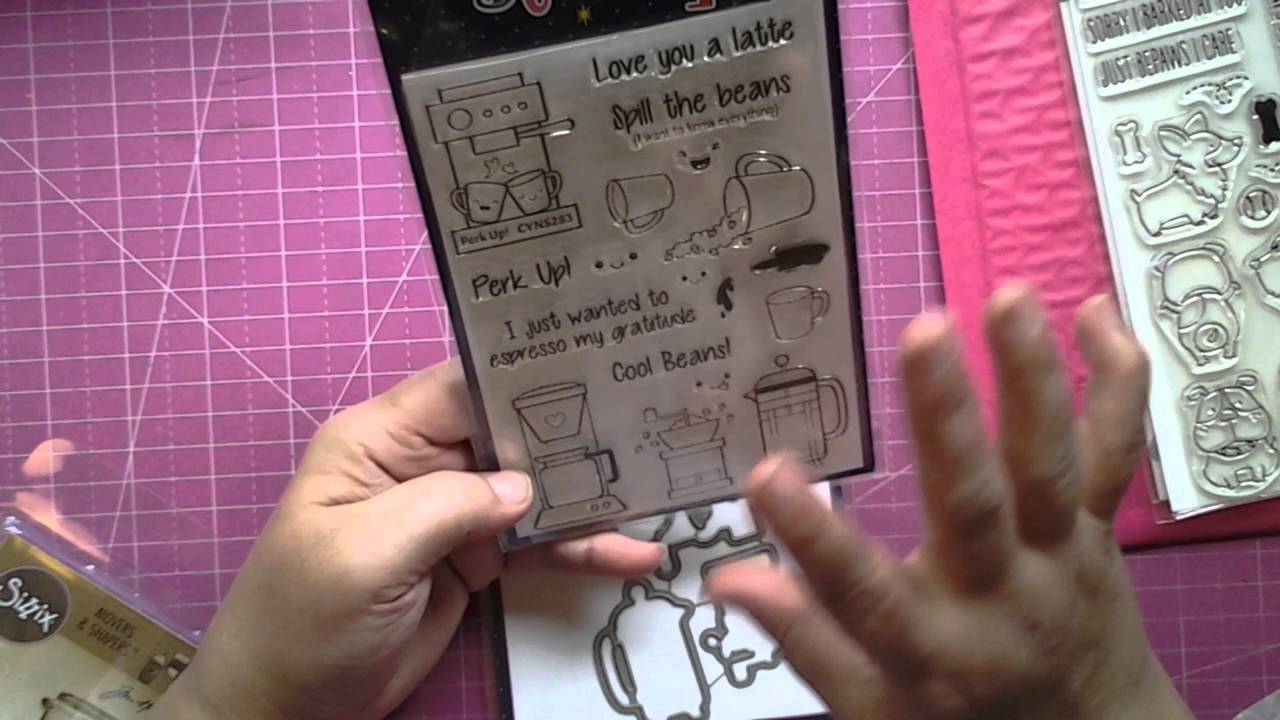 Love you a latte
Spill the beans
(I want to know everything)
Perk Up! CYNS283
Perk Up!
I just wanted to
espresso my gratitude
Cool Beans!
SORRY I BARKED AT YOU
JUST BEPAWS I CARE
Sizzix
MOVERS
& SHAPERS